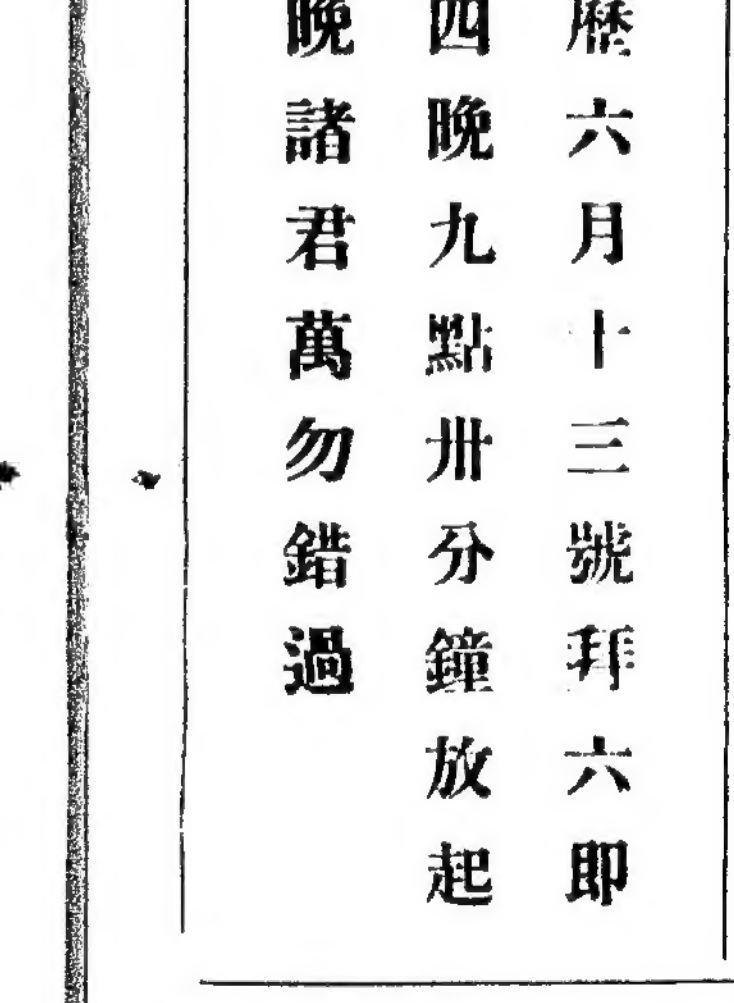 歷六月十三號拜六即
四晚九點卅分鐘放起
晚諸君萬勿錯過